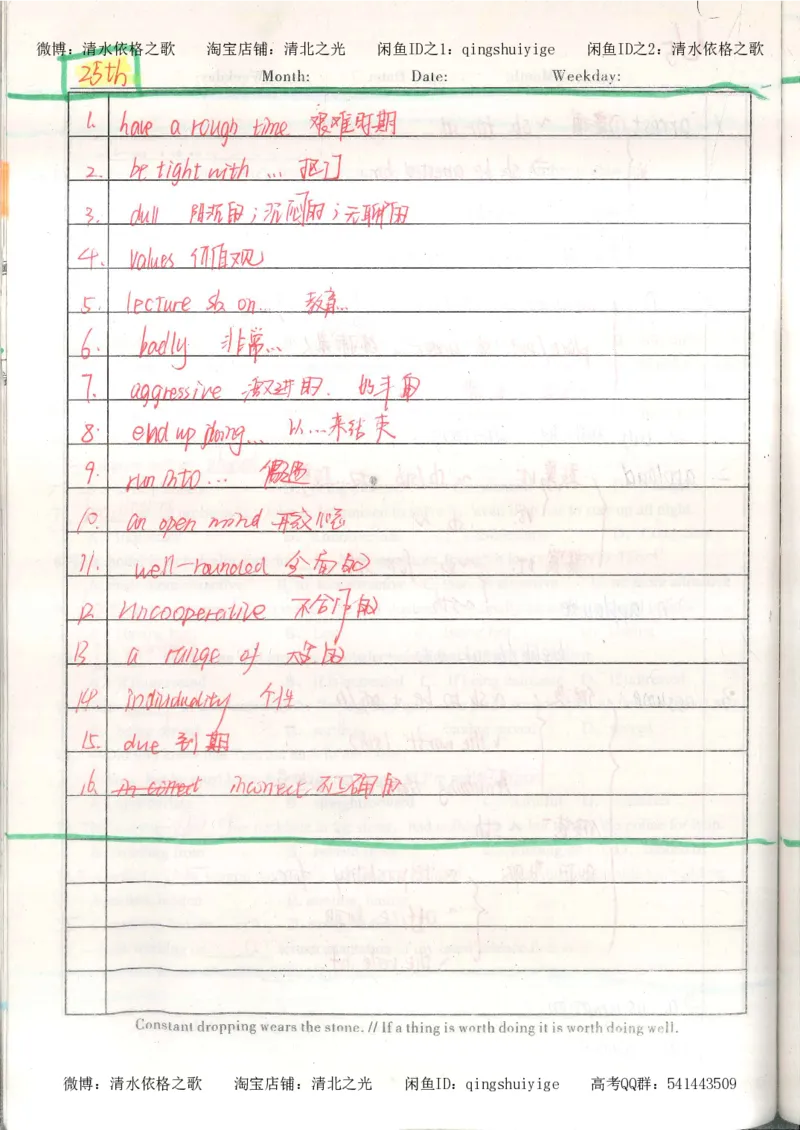 微博：清水依格之歌 淘宝店铺：清北之光 闲鱼ID之1：qingshuiyige 闲鱼ID之2：清水依格之歌
25th Month: Date: Weekday:
1. have a rough time 艰难时期
2. be tight with ... 抠门
3. dull 阴沉的；沉闷的；无聊的
4. values 价值观
5. lecture sb on... 教育...
6. badly 非常...
7. aggressive 激进的.
8. end up doing... 以...来结束
9. run into ... 偶遇
10. an open mind 开放心态
11. well-rounded 全面的
12 Uncooperative 不合作的
13 a range of 大范围
14. individuality 个性
15. due 到期
16. In correct incorrect 不正确的
Constant dropping wears the stone. // If a thing is worth doing it is worth doing well.
微博：清水依格之歌 淘宝店铺：清北之光 闲鱼ID：qingshuiyige 高考QQ群：541443509